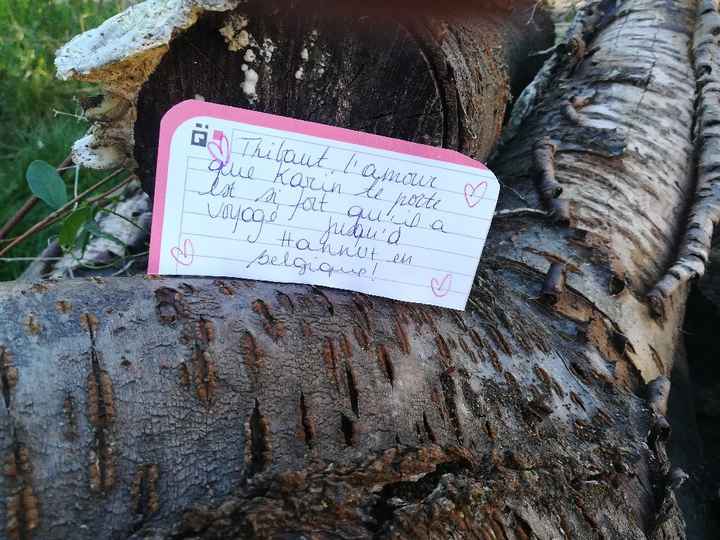 Thibaut l'amour
que Karin te porte
est si fort qu'il a
voyagé jusqu'à
Hannut en
Belgique!